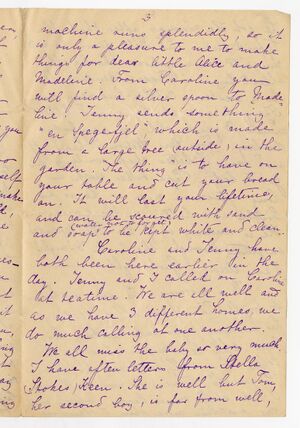 3
machine runs splendidly, so it
is only a pleasure to me to make
things for dear little Alice and
Madeleine. From Caroline you
will find a silver spoon to Made-
leine. Jenny sends something
"en which is made
from a large tree outside, in the
garden. The thing is to have on
your table and cut your bread
on. It will last your lifetime,
and can be scoured with sand
(water not to forget)
and soap to be kept white and clean.
Caroline and Jenny have
both been here earlier in the
day. Jenny and I called on Caroline
at teatime. We are all well and
as we have 3 different homes, we
do much calling at one another.
We all miss the baby so very much.
I have often letters from Stella
(Stokes) Keen. She is well but Tom,
her second boy, is far from well,